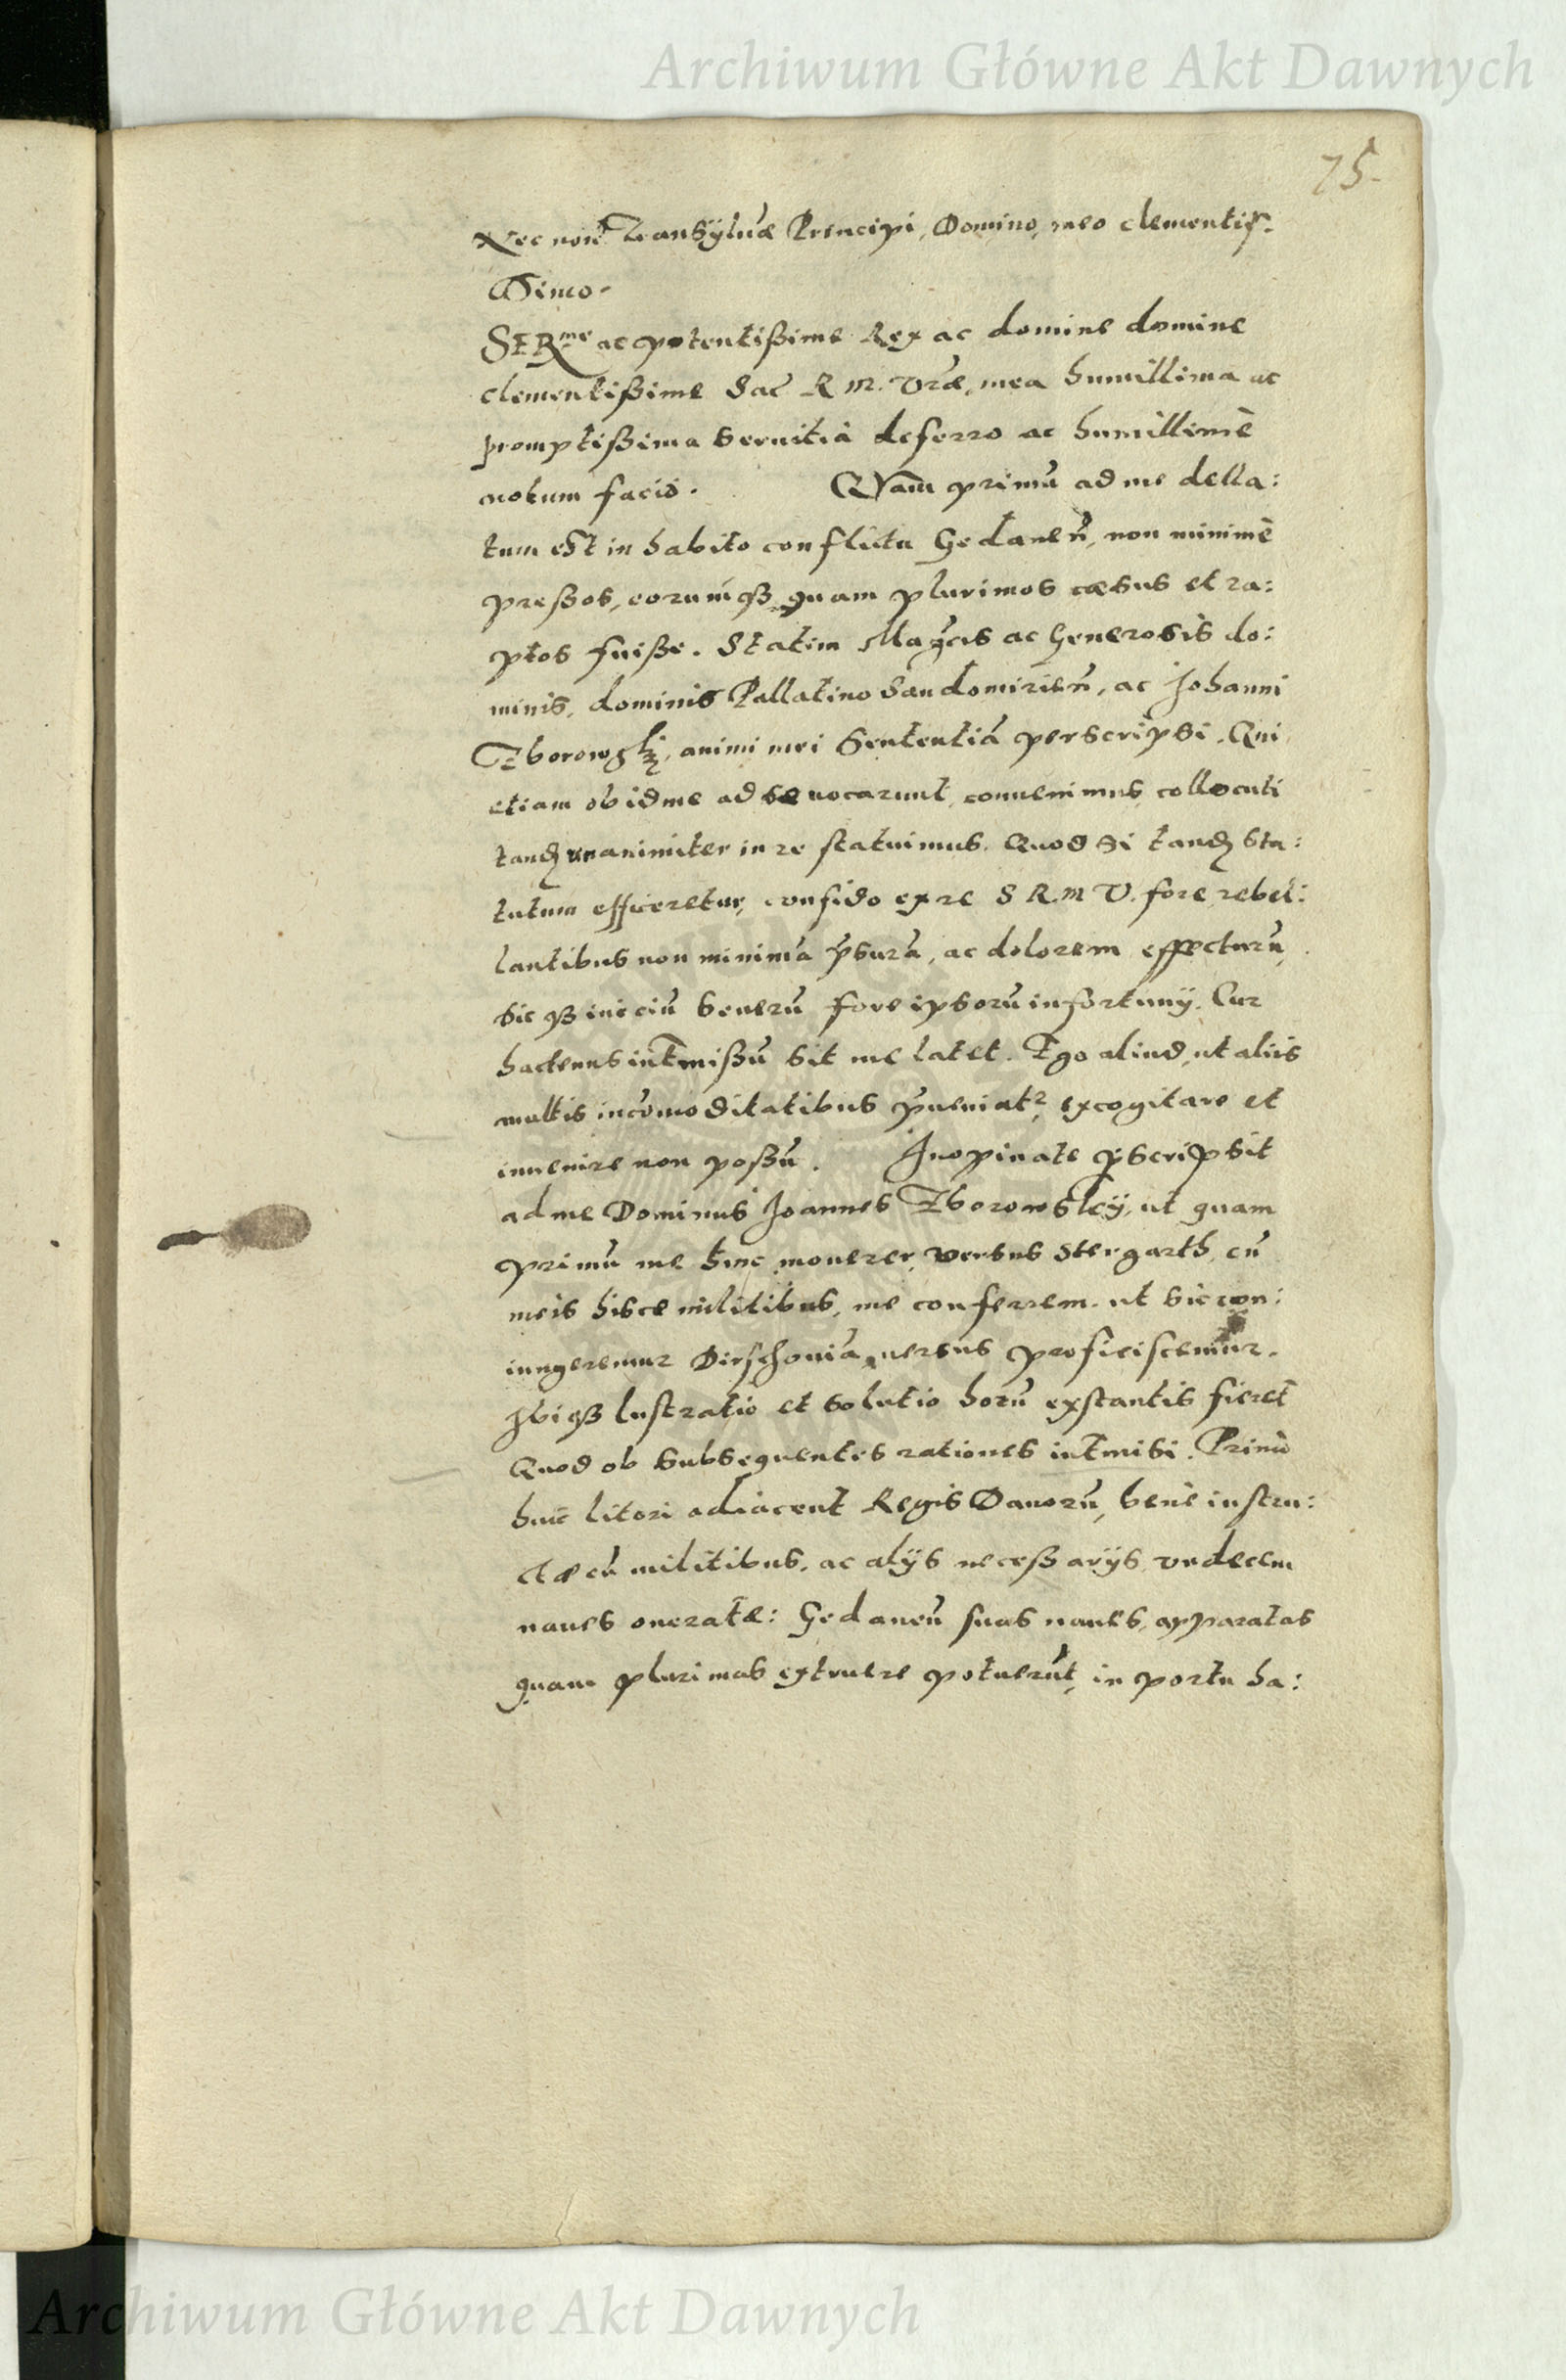 Archiwum Główne Akt Dawnych
75.
Nec non Transyluæ Principi, Domino, meo clementis:
simo.
SERme ac potentißime Rex ac domine domine
clementißime Sac R M. Vræ, mea humillima ac
promptißima seruitia defero ac humillimè
notum facio. QVam primũ ad me della:
tum est in habito conflictu Gedaneñ, non minimè
preßos, eorumqß quam plurimos cæsus et ra:
ptos fuiße. Statim Mag̃cis ac Generosis do:
minis, dominis Pallatino Sandomirieñ, ac Johanni
Zborowskÿ, animi mei sententiã perscripsi. Qui
etiam ob id me ad se uocarunt, conuenimus, collocuti
tandẽ unanimiter in re statuimus. Quod si tandẽ sta:
tutum efficeretur, confido ex re S R. M V. fore, rebel:
lantibus non minimã p̃surã, ac dolorem effecturũ,
sic qß iniciũ uenerũ fore ipsorũ infortunÿ. Cur
hactenus int̃mißũ sit me latet. Ego aliud, ut aliis
multis incõmoditatibus p̃ueniatr, excogitare et
inuenire non poßũ. Inopinate p̃scripsit
ad me Dominus Joannes Zborowskÿ, ut quam
primũ me hinc mouerer, versus Stergarth, cũ
meis hisce militibus, me conferrem. ut sic con:
iungeremur Dirschouiã uersus proficiscemur.
Ibiqß lustratio et solutio horũ exstantis fieret
Quod ob subsequentes rationes int̃misi. Primũ
huic litori adiacent Regis Danorũ, benè instru:
ctæ cũ militibus, ac alÿs neceßarÿs, vndecem
naues oneratæ: Gedaneñ suas naues, apparatas
quam plurimas extruere potuerũt, in portu ha:
Archiwum Główne Akt Dawnych